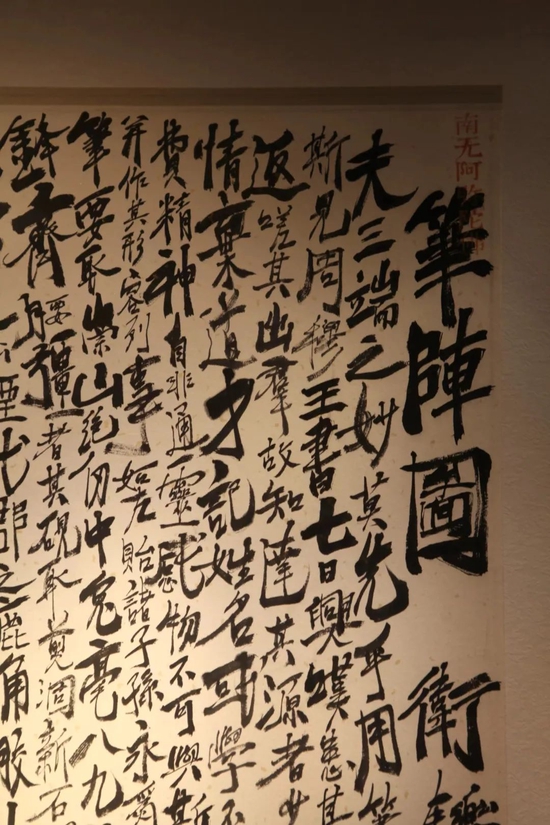 南无阿
筆陣圖 衛
夫三端之妙莫先乎用筆
斯見周穆王書七日興嘆患其
返嗟其出群故知達其源者少
情棄道才記姓名或學不
費精神自非通靈感物不可與斯
并作其形容列事如左貽諸子孫永為
筆要取崇山絕仞中兔毫八九
鋒齊腰強者其硯取煎涸新石
煙代郡之鹿角膠